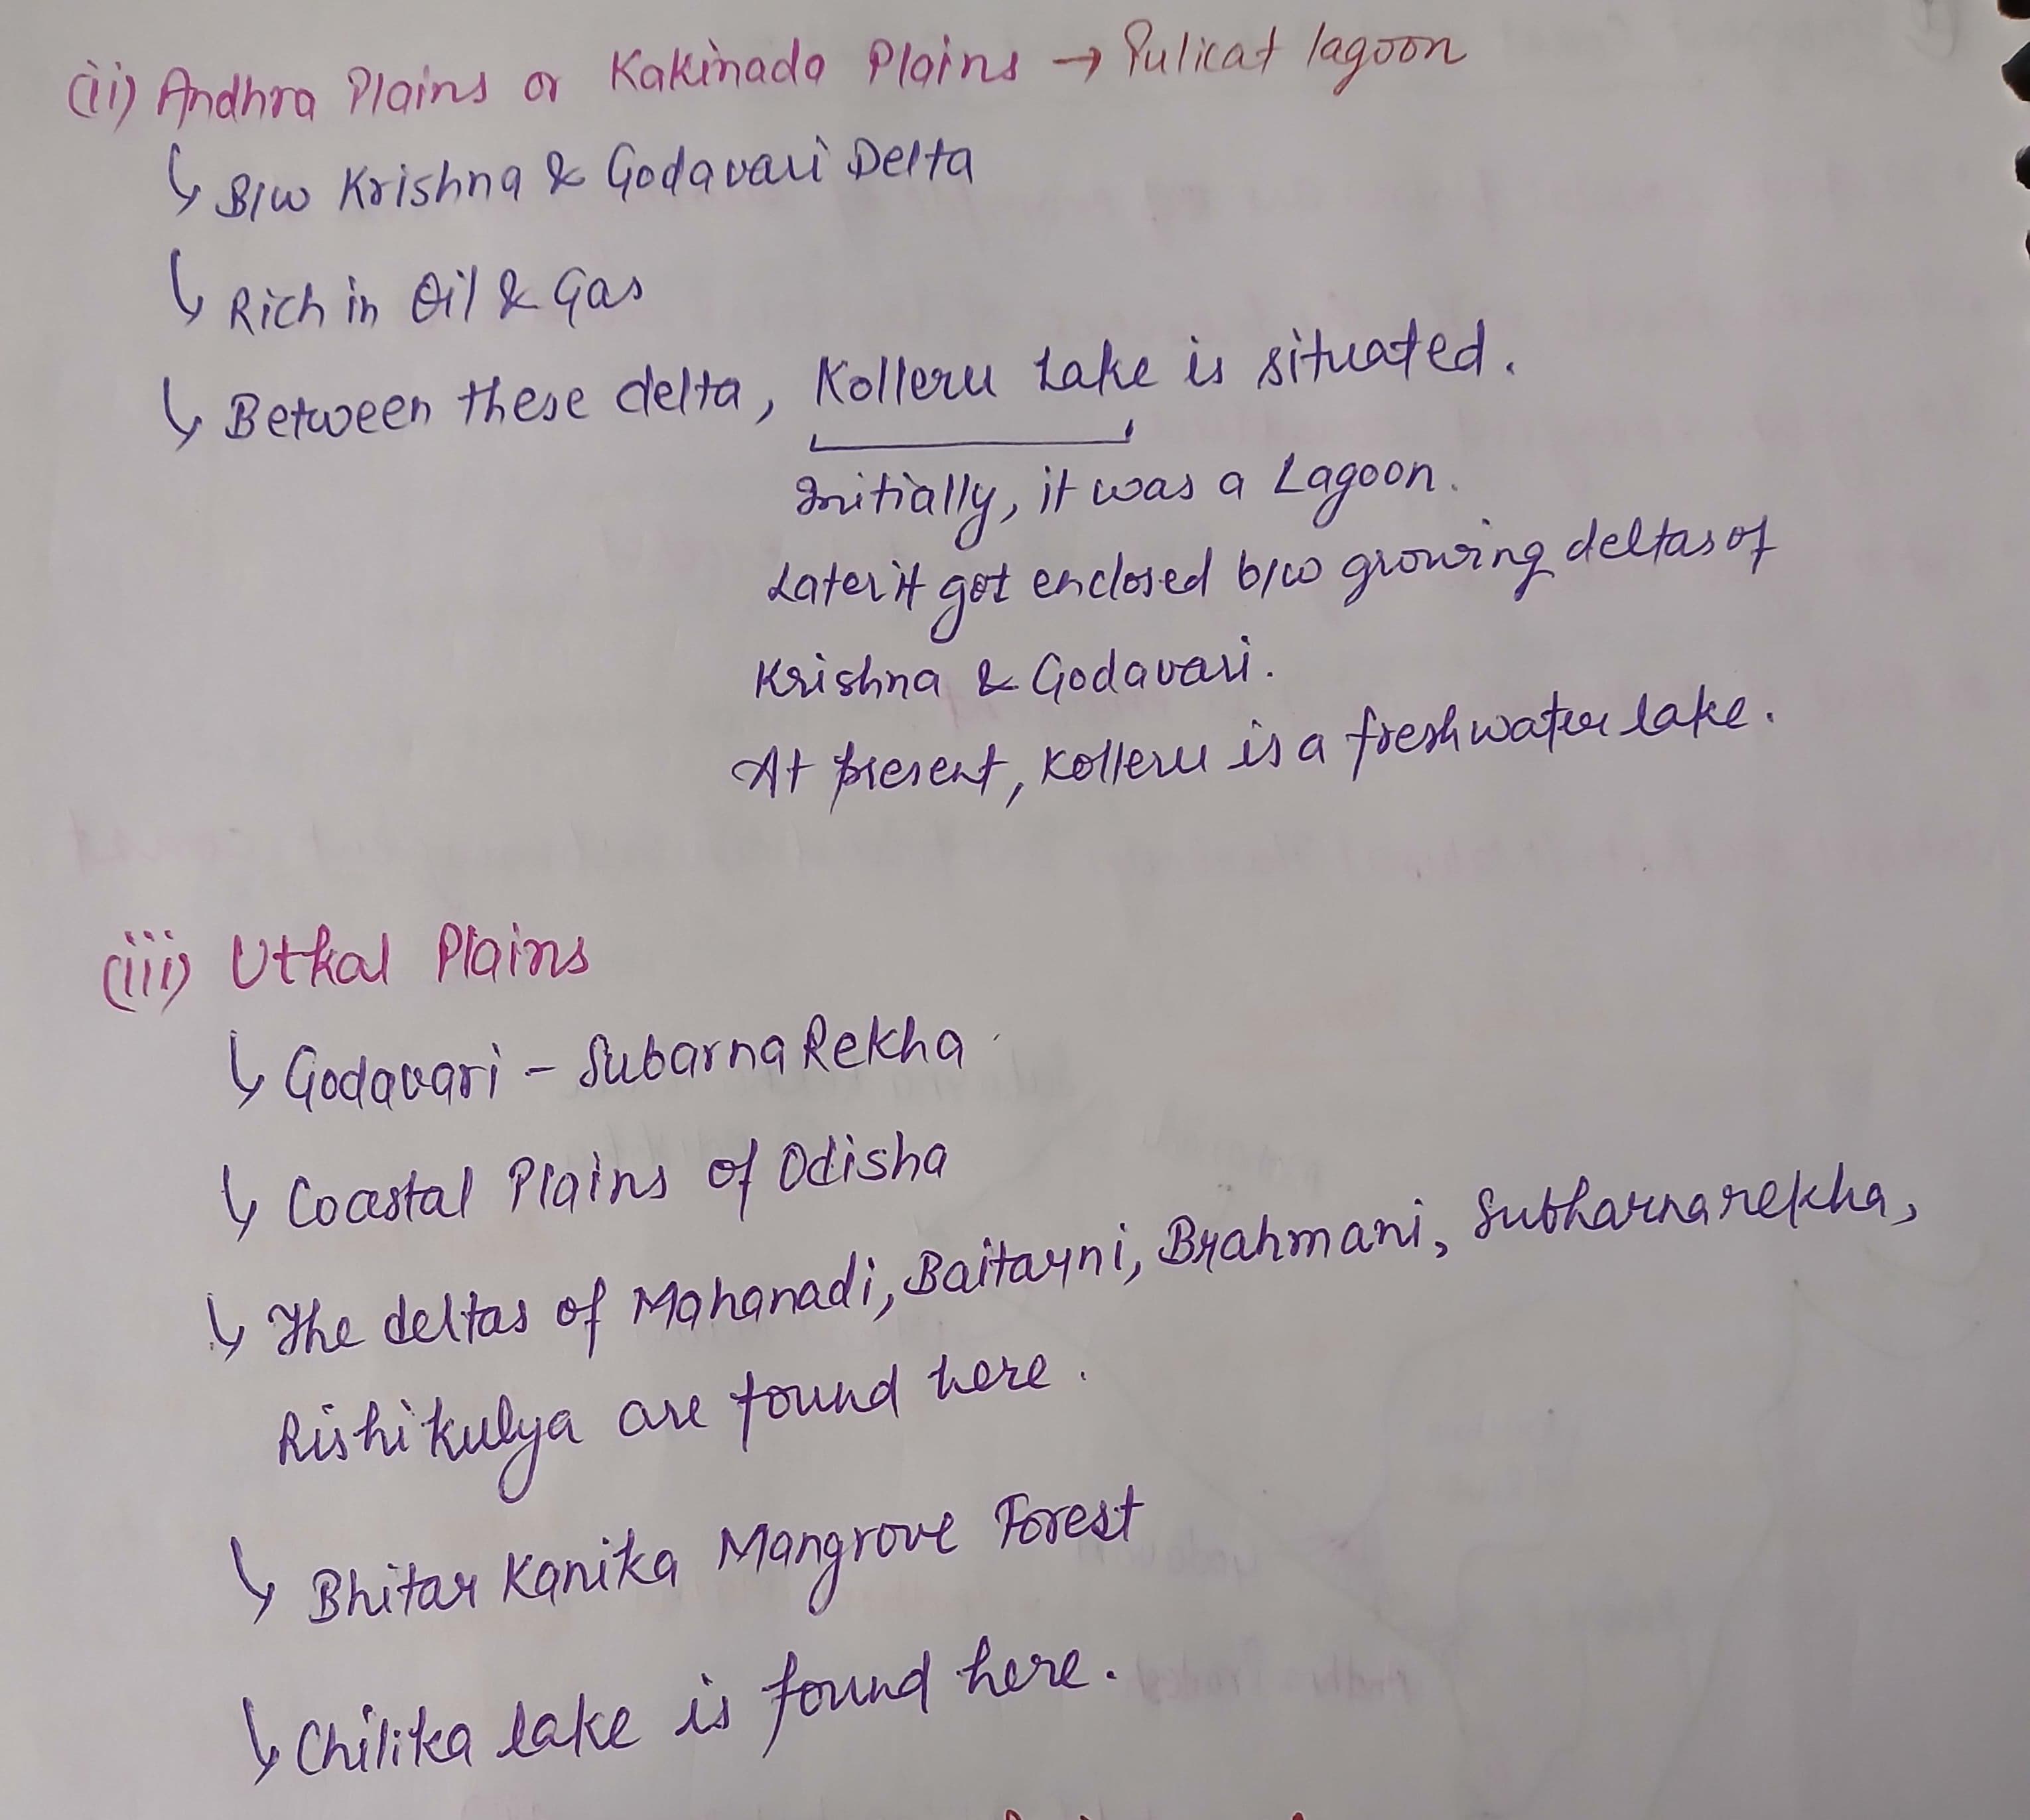 (ii) Andhra Plains or Kakinada Plains → Pulicat lagoon
↳ B/w Krishna & Godavari Delta
↳ Rich in Oil & Gas
↳ Between these delta, Kolleru Lake is situated.
Initially, it was a Lagoon.
Later it got enclosed b/w growing deltas of
Krishna & Godavari.
At present, Kolleru is a freshwater lake.
(iii) Utkal Plains
↳ Godavari - Subarna Rekha
↳ Coastal Plains of Odisha
↳ The deltas of Mahanadi, Baitarni, Brahmani, Subharnarekha,
Rishikulya are found here.
↳ Bhitar Kanika Mangrove Forest
↳ Chilika lake is found here.